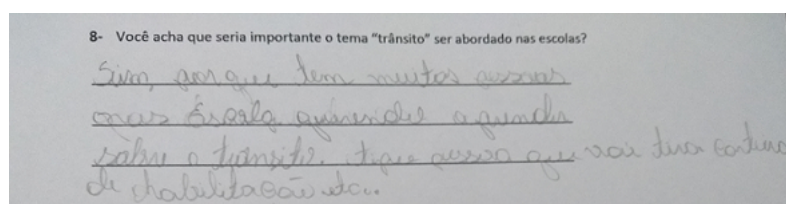 8- Você acha que seria importante o tema “trânsito” ser abordado nas escolas?
Sim, porque tem muitos pessoas
querendo aprender
sobre o trânsito. pessoa que vai tirar
de chabilitação etc..